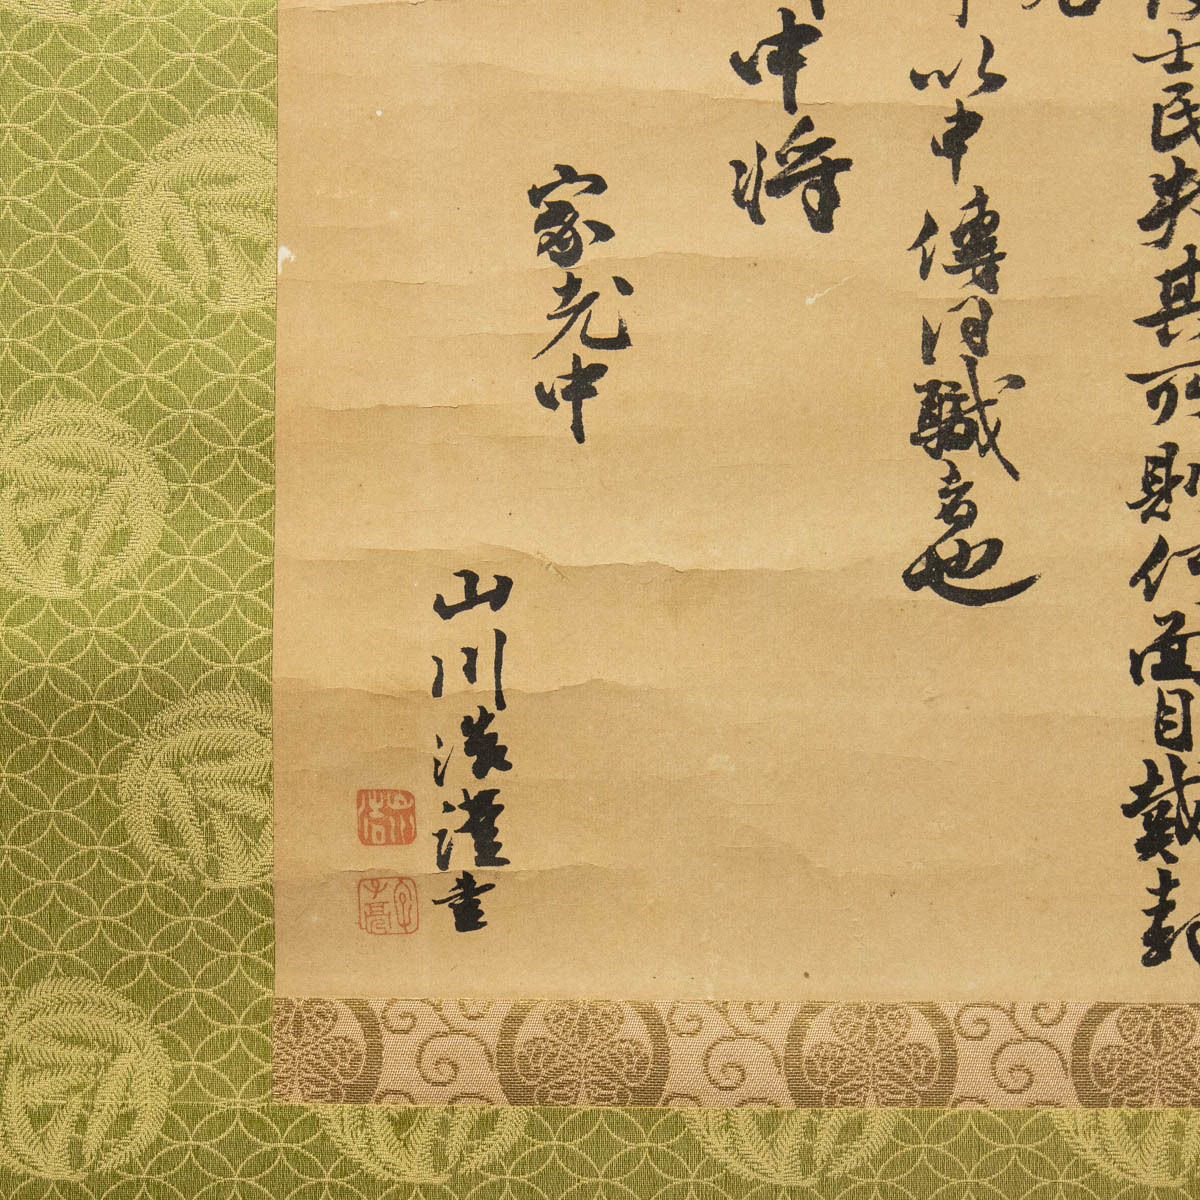 士民失其所則何面目戴封
以中傳同職者也
中将
家老中
山川浩謹書